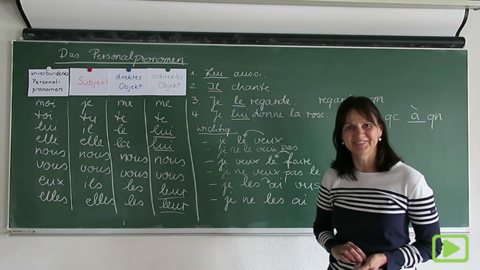 Das Personalpronomen
unverbundenes Personal-pronomen
Subjekt
direktes Objekt
indirektes Objekt
moi je me me
toi tu te te
lui il le lui
elle elle la lui
nous nous nous nous
vous vous vous vous
eux ils les leur
elles elles les leur
1. Lui aussi
2. Il chante
3. Je le regarde. regarde
4. Je lui donne la rose. qc à qn
wichtig:
- je le veux
- je ne le veux pas
- je veux le faire
- je ne veux pas le
- je les ai vus
- je ne les ai